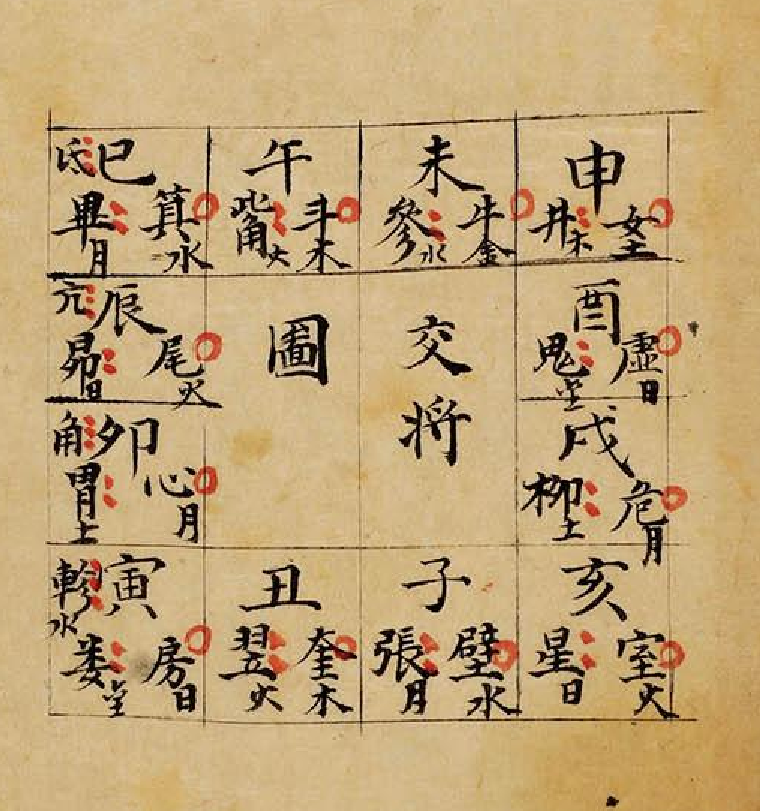 申
女土
井木
未
牛金
參水
午
斗木
觜火
巳
氐
箕水
畢月
交将
圖
酉
虛日
鬼金
戌
危月
柳土
辰
亢
尾火
昴日
卯
角
心月
胃土
亥
室火
星日
子
壁水
張月
丑
奎木
翌火
寅
軫水
房日
婁金